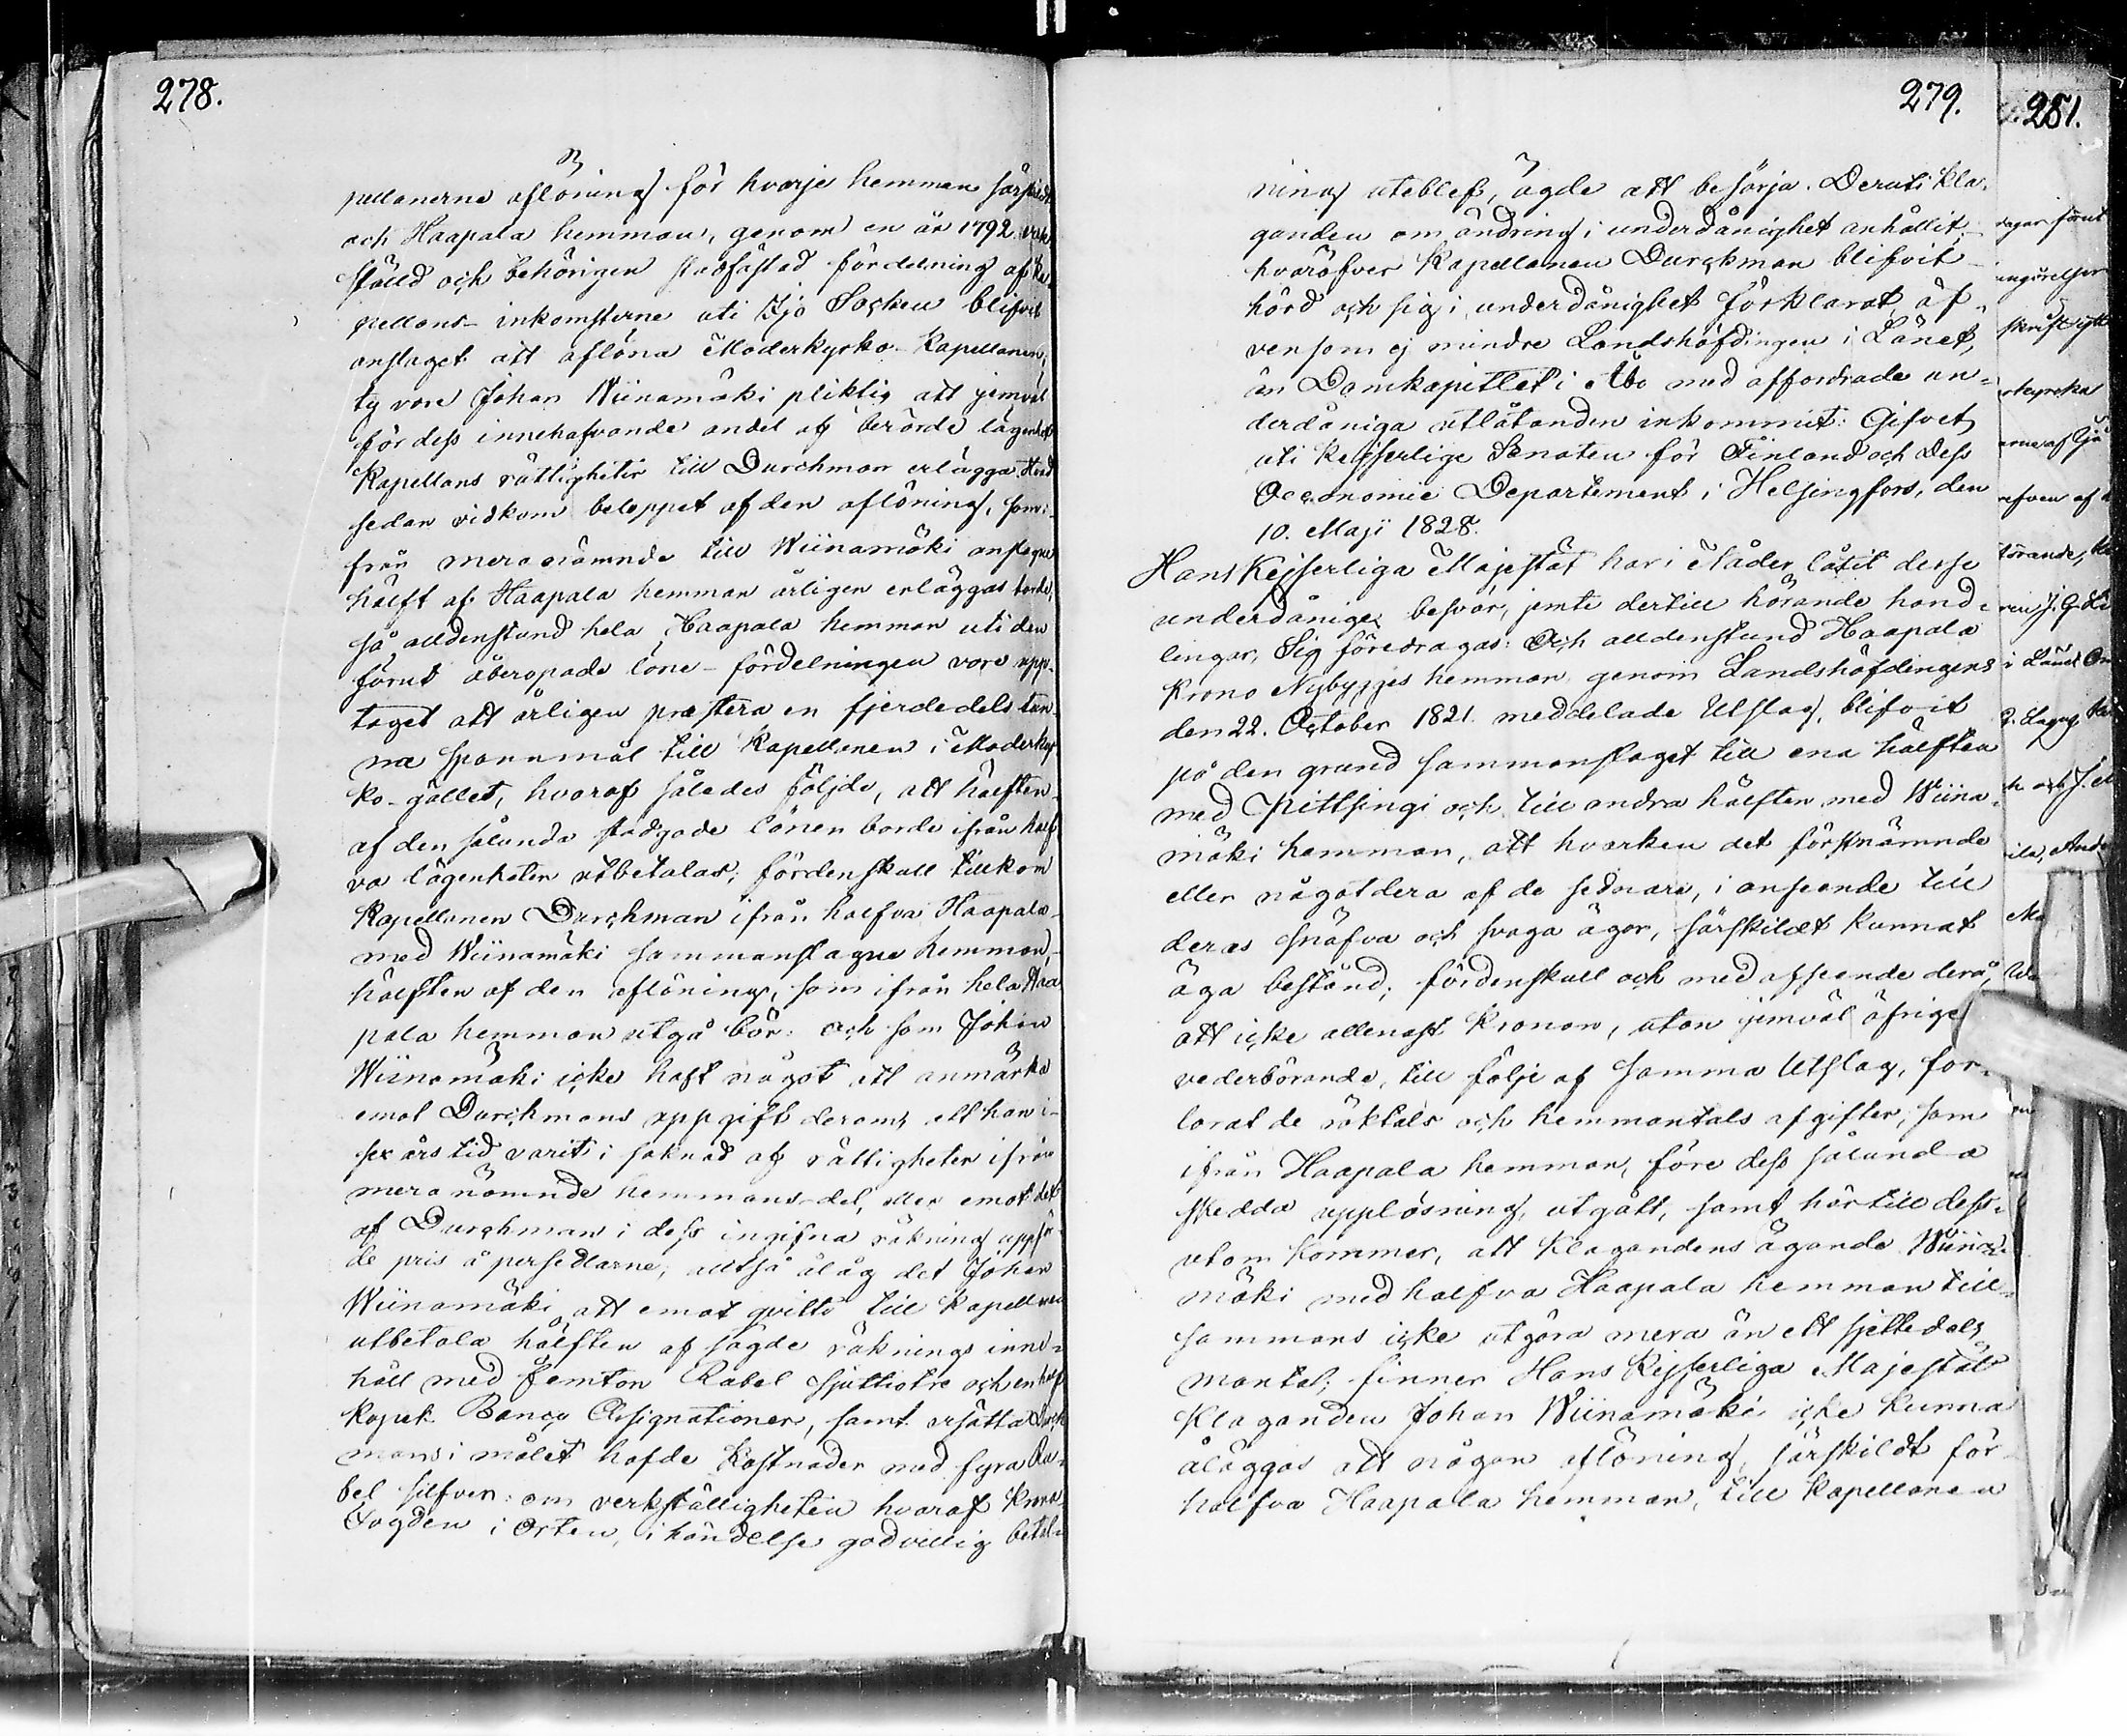 278.
pellanerne aflöning för hvarje hemman särskildt
och Haapala hemman, genom en år 1792 verk-
ställd och behörigen stadfästad fördelning af Ka-
pellans-inkomsterne uti Ijo Socken blifvit
anslaget att aflöna Moderkyrko-Kapellanen,
ty vore Johan Wiinamäki pliktig att jemväl
för dess innehafvande andel af berörde lägenhet
Kapellans rättigheter till Durchman erlägga. Hvad
sedan vidkom beloppet af den aflöning, som i-
från meranämnde till Wiinamäki anslagne
hälft af Haapala hemman årligen erläggas borde,
så alldenstund hela Haapala hemman uti den
förut åberopade löne-fördelningen vore upp-
taget att årligen præstera en fjerdedels tun-
na spannmål till Kapellanen i Moderkyr-
ko-gället, hvaraf således följde, att hälften
af den sålunda stadgade lönen borde ifrån half-
va lägenheten utbetalas; fördenskull tillkom
Kapellanen Durchman ifrån halfva Haapala
med Wiinamäki sammanslagne hemman,
hälften af den aflöning, som ifrån hela Haa-
pala hemman utgå bör: och som Johan
Wiinamäki icke haft något att anmärka
emot Durchmans uppgift derom, att han i
sex års tid varit i saknad af rättigheter ifrån
meranämnde hemmans-del, eller emot det
af Durchman i dess ingifna räkning uppför-
de pris å persedlarne; alltså ålåg det Johan
Wiinamäki, att emot qvitto till Kapellanen
utbetala hälften af sagde räknings inne-
håll med femton Rubel sjuttiotre och en half
Kopek Banco Assignationer, samt ersätta Durch-
mans i målet hafde Kostnader med fyra Ru-
bel silfver: om verkställigheten hvaraf Krono-
Fogden i Orten, i händelse godvillig betal-
279.
ning uteblef, ägde att besörja. Deruti kla-
ganden om ändring i underdånighet anhållit;
hvaröfver Kapellanen Durchman blifvit
hörd och sig i underdånighet förklarat, äf-
vensom ej mindre Landshöfdingen i Länet,
än Domkapitlet i Åbo med affordrade un-
derdåniga utlåtanden inkommit: Gifvet
uti Kejserlige Senaten för Finland och dess
Oeconomie Departement i Helsingfors, den
10. Maji 1828.
Hans Kejserliga Majestät har i Nåder låtit desse
underdånige besvär, jemte dertill hörande hand-
lingar, Sig föredragas: Och alldenstund Haapala
Krono Nybygges hemman genom Landshöfdingens
den 22. October 1821. meddelade Utslag, blifvit
på den grund sammanslaget till ena hälften
med Pittsingi och till andra hälften med Wiina-
mäki hemman, att hvarken det förstnämnde
eller någotdera af de sednare, i anseende till
deras snäfva och svaga ägor, särskildt kunnat
äga bestånd; fördenskull och med afseende derå,
att icke allenast Kronan, utan jemväl öfrige
vederbörande, till följe af samma Utslag, för-
lorat de röktals och hemmantals afgifter, som
ifrån Haapala hemman, före dess sålunda
skedda upplösning, utgått, samt härtill dess-
utom kommer, att Klagandens ägande Wiina-
mäki med halfva Haapala hemman till-
sammans icke utgöra mera än ett sjettedels
mantal; finner Hans Kejserliga Majestät
Klaganden Johan Wiinamäki icke kunna
åläggas att någon aflöning, särskildt för
halfva Haapala hemman, till Kapellanen
281.